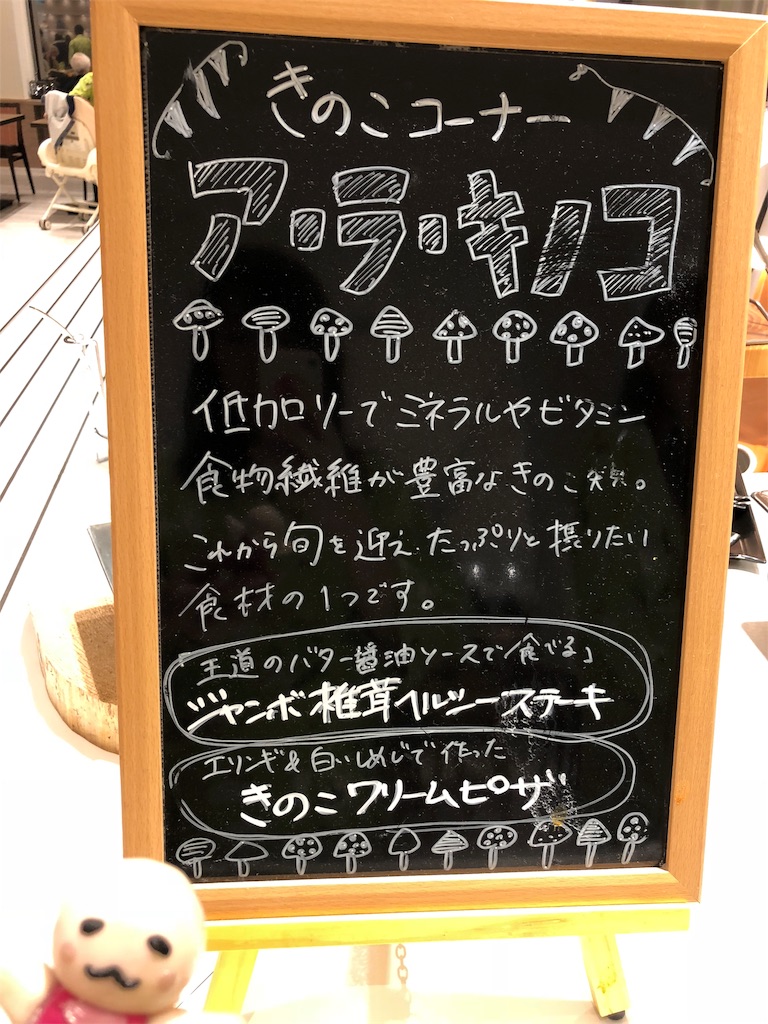 きのこコーナー
ア・ラ・キノコ
低カロリーでミネラルやビタミン
食物繊維が豊富なきのこ類。
これから旬を迎え、たっぷりと摂りたい
食材の1つです。
「王道のバター醤油ソースで食べる」
ジャンボ椎茸ヘルシーステーキ
エリンギ&白いしめじで作った
きのこクリームピザ